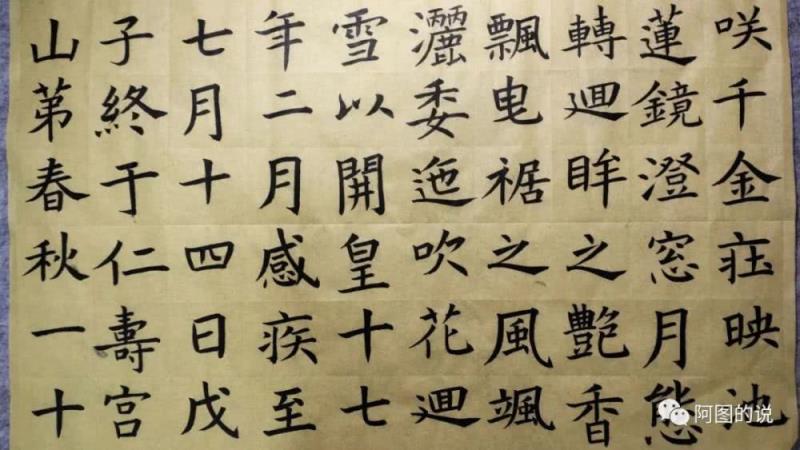 咲千金㽵映池
蓮鏡澄窓月態
轉迴眸之艷香
飄曳裾之風颯
灑委迤吹花迴
雪以開皇十七
年二月感疾至
七月十四日戊
子終于仁壽宮
山第春秋一十
阿图的说